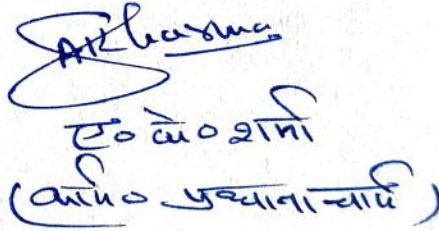 AKSharma
ए० के० शर्मा
(कार्य० प्रधानाचार्य)